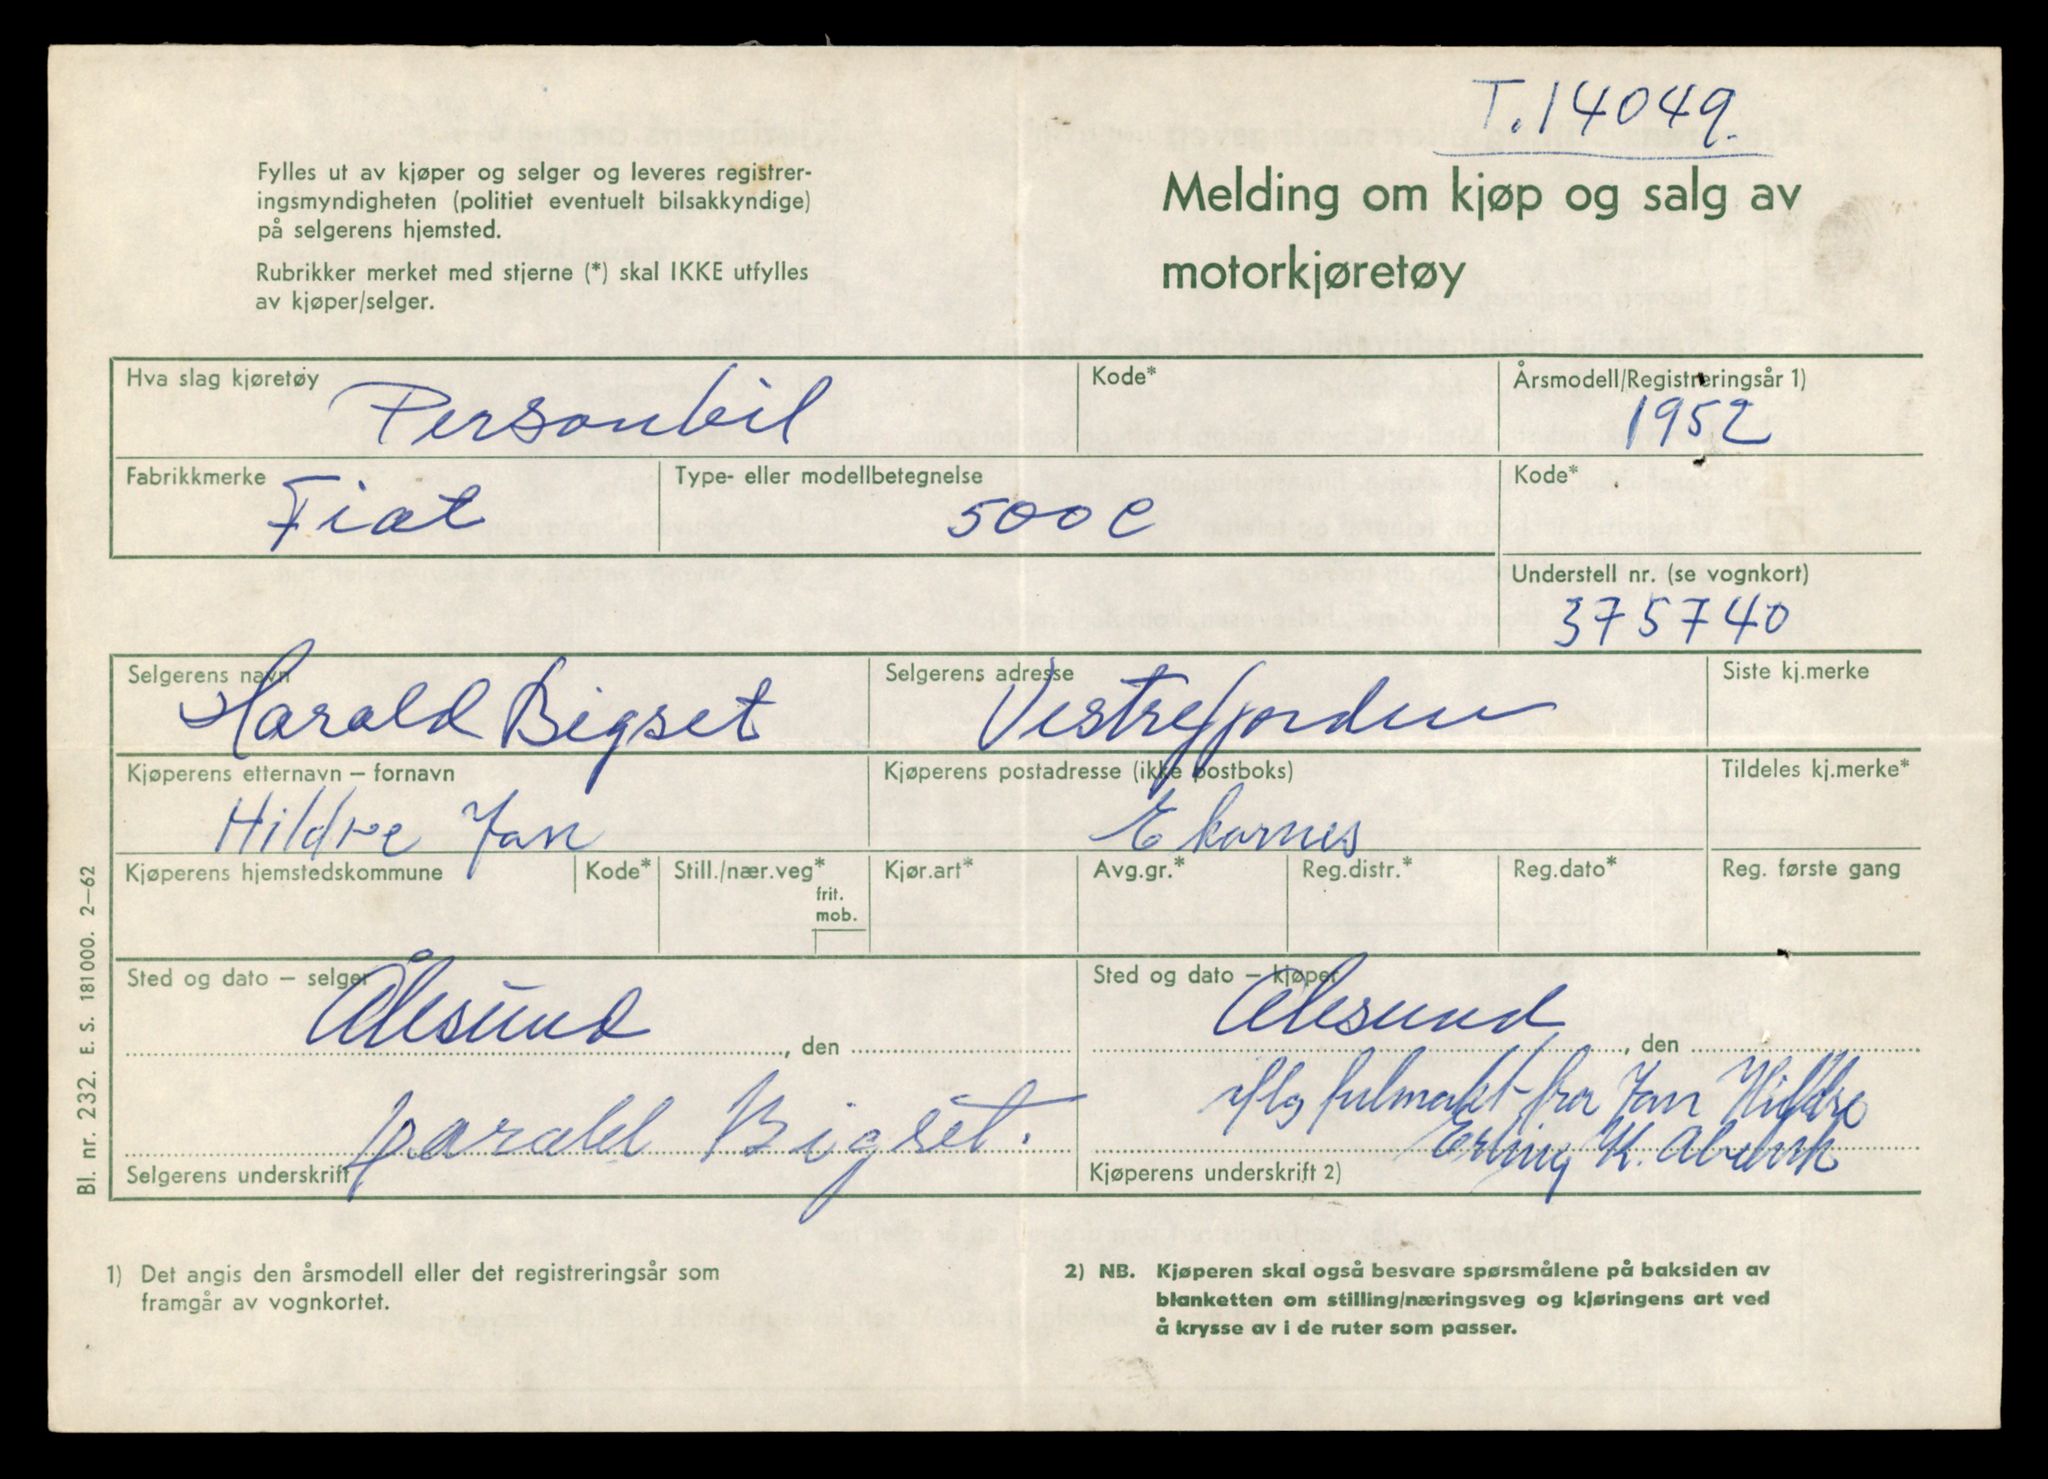 T.14049.
Fylles ut av kjøper og selger og leveres registrer-
ingsmyndigheten (politiet eventuelt bilsakkyndige)
på selgerens hjemsted.
Rubrikker merket med stjerne (*) skal IKKE utfylles
av kjøper/selger.
Melding om kjøp og salg av
motorkjøretøy
Hva slag kjøretøy
Personbil
Kode*
Årsmodell/Registreringsår 1)
1952
Fabrikkmerke
Fiat
Type- eller modellbetegnelse
500 C
Kode*
Understell nr. (se vognkort)
375740
Selgerens navn
Harald Bigset
Selgerens adresse
Vestrefjorden
Siste kj.merke
Kjøperens etternavn – fornavn
Hildre Jan
Kjøperens postadresse (ikke postboks)
Ekornes
Tildeles kj.merke*
Kjøperens hjemstedskommune
Kode*
Still./nær.veg*
frit.
mob.
Kjør.art*
Avg.gr.*
Reg.distr.*
Reg.dato*
Reg. første gang
Sted og dato – selger
Ålesund
, den
Sted og dato – kjøper
Ålesund
, den
Harald Bigset.
Selgerens underskrift
iflg fulmakt fra Jan Hildre
Erling K.
Kjøperens underskrift 2)
Bl. nr. 232. E. S. 181000. 2–62
1) Det angis den årsmodell eller det registreringsår som
framgår av vognkortet.
2) NB. Kjøperen skal også besvare spørsmålene på baksiden av
blanketten om stilling/næringsveg og kjøringens art ved
å krysse av i de ruter som passer.